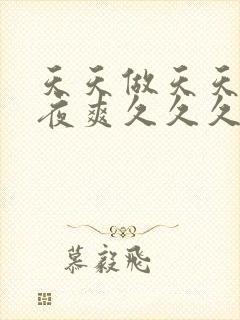 天天做天天
夜爽久久久
慕毅飛